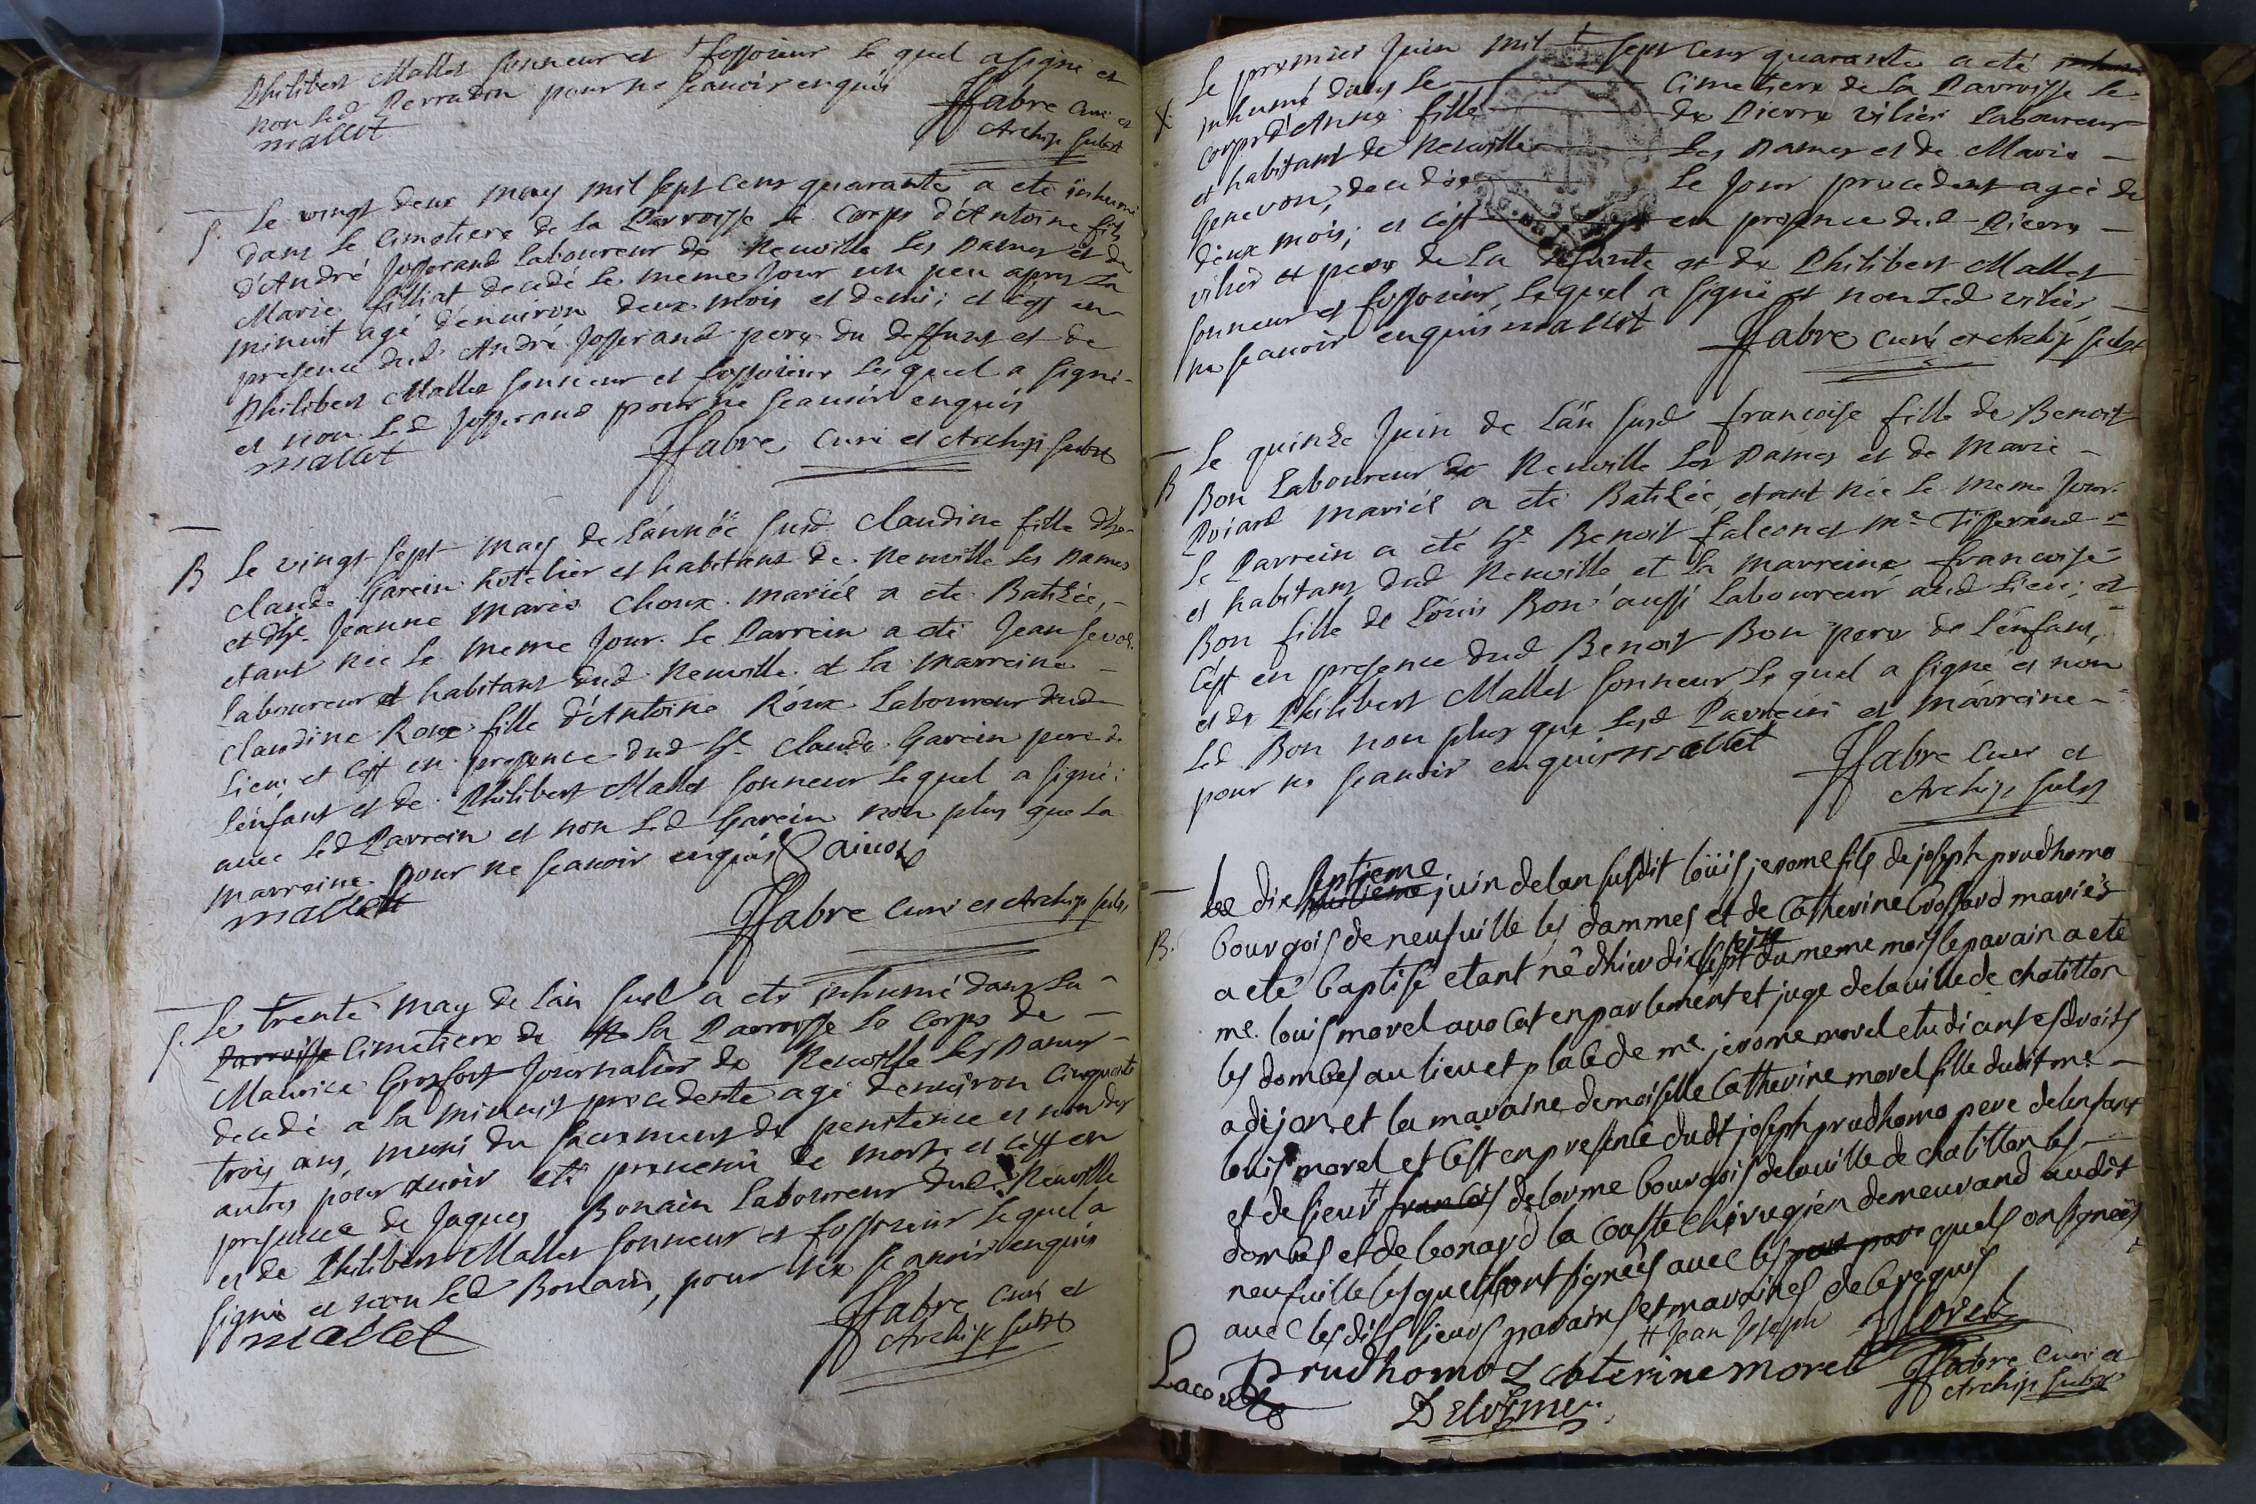 Philibert Mallet sonneur et fossoieur le quel a signé et
non led Perradin pour ne scauoir enquis
mallet
ffabre curé et
Archip subst
S. Le vingt deux may mil sept cens quarante a eté inhumé
dans le cimetiere de la Parroisse le corps d'Antoine fils
d'André Josserand laboureur de Neuville les Dames et de
Marie filliat decedé le meme Jour un peu apres la
minuit agé d'enuiron deux mois et demi; et c'est en
presence dud André Josserand pere du deffunt et de
Philibert Mallet sonneur et fossoieur lequel a signé
et non led Josserand pour ne scauoir enquis
mallet
ffabre, curé et Archip subst
B Le vingt sept may de l'année susd Claudine fille d'h
Claude Garein hotelier et habitant de Neuville les Dames
et d'h Jeanne Marie Choux mariés a eté Batisée,
etant née le meme Jour. Le Parrein a eté Jean
laboureur et habitant dud Neuville et la Marreine
Claudine Roux fille d'Antoine Roux laboureur dud
lieu; et c'est en presence dud Sr Claude Garein pere de
l'enfant et de Philibert Mallet sonneur lequel a signé
auec led Parrein et non led Garein non plus que la
marreine pour ne scauoir enquis
mallet
ffabre curé et Archip subst
S. Le trente may de l'an susd a eté inhumé dans la
Parroisse cimetiere de la Parroisse le corps de
Maurice Grosfort Journalier de Neuville les Dames
decedé a la minuit precedente agé d'enuiron cinquante
trois ans, muni du sacrement de penitence et non des
autres pour auoir eté preuenu de mort, et c'est en
presence de Jaques Bonain laboureur dud Neuville
et de Philibert Mallet sonneur et fossoieur lequel a
signé et non led Bonain, pour ne scauoir enquis
mallet
ffabre curé et
Archip subst
Le premier Juin mil sept cens quarante a eté
inhumé dans le cimetiere de la Parroisse le
corps d'Anne fille de Pierre vilier laboureur
et habitant de Neuville les Dames et de Marie
Genevon, decedée le Jour precedent agée de
deux mois; et c'est en presence dud Pierre
vilier pere de la defunte et de Philibert Mallet
sonneur et fossoieur, lequel a signé et non led vilier
ne scauoir enquis mallet
ffabre curé et Archip subst
B Le quinze Juin de l'an susd francoise fille de Benoit
Bon laboureur de Neuville les Dames et de Marie
Poiard mariés a eté Batisée, etant née le meme Jour.
Le Parrein a eté Sr Benoit falconet me Tisserand
et habitant dud Neuville et la marreine francoise
Bon fille de Loüis Bon aussi laboureur aud lieu; et
c'est en presence dud Benoit Bon pere de l'enfant,
et de Philibert Mallet sonneur lequel a signé et non
led Bon non plus que lesd Parrein et marreine
pour ne scauoir enquis mallet
ffabre curé et
Archip subst
septieme
B. Le dix huitieme juin de lan susdit loüis jerome fils de joseph prudhomo
bourgois de neufuille les dammes et de catherine brossard mariés
seize
a eté baptisé etant né dhier dix sept du meme mois le parain a eté
me. louis morel auocat en parlement et juge de la ville de chatillon
les dombes au lieu et place de me jerome morel etudiant es droits
a dijon et la maraine demoiselle catherine morel fille dudit me
louis morel et cest en presence dudt joseph prudhomo pere de lenfant
et de sieur # francois delorme bourgois de la uille de chatillon les
dombes et de leonard la couste chirugien demeurand audit
neufuille lesquels ont signeés auec les pour par quels on signeés
auec lesdits sieurs parains et maraines de ce requis
# Jean Joseph
Morel
Prudhomo
Caterine morel
ffabre curé et
Archip subst
Lacouste
Delorme